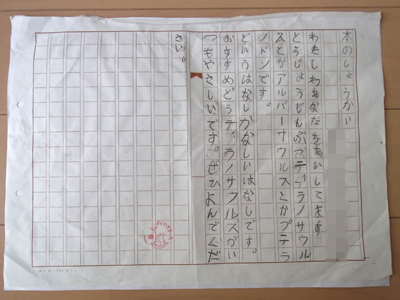 本のしょうかい
わたしわあなたをあいしてます
とうじょうじんぶつテデラノサウル
スとかアルバーナウルスとかプテラ
ノドンです。
どいうはなしかなしいはなしです。
おすすめどうテラノサウルスがい
つもやさしいです。ぜひよんでくだ
さい。